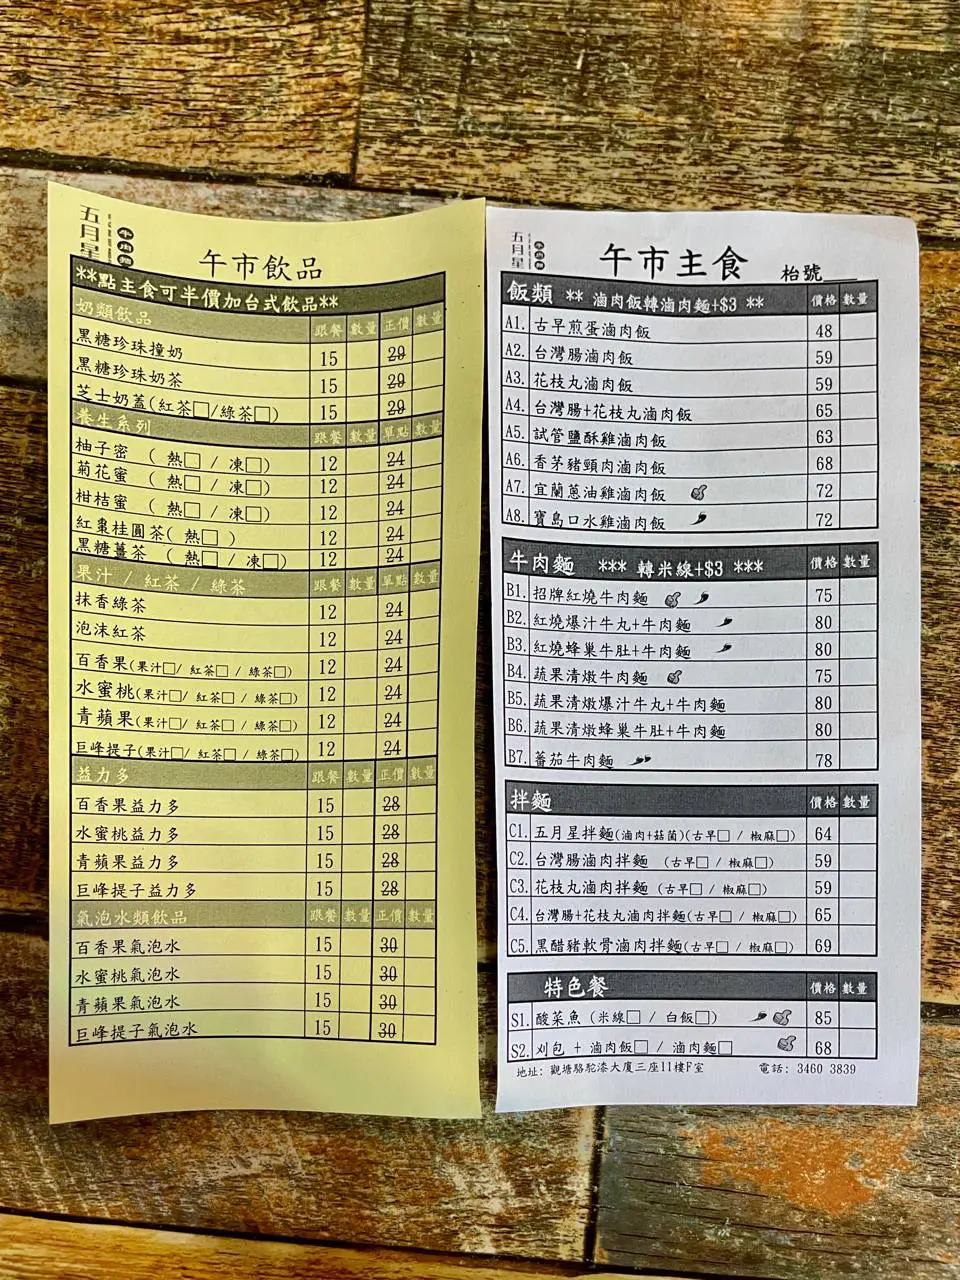 五月星
牛肉麵
午市飲品
**點主食可半價加台式飲品**
奶類飲品 跟餐 數量 正價 數量
黑糖珍珠撞奶 15 29
黑糖珍珠奶茶 15 29
芝士奶蓋(紅茶□/綠茶□) 15 29
養生系列 跟餐 數量 單點 數量
柚子密 ( 熱□ / 凍□) 12 24
菊花蜜 ( 熱□ / 凍□) 12 24
柑桔蜜 ( 熱□ / 凍□) 12 24
紅棗桂圓茶( 熱□ ) 12 24
黑糖薑茶 ( 熱□ / 凍□) 12 24
果汁 / 紅茶 / 綠茶 跟餐 數量 單點 數量
抹香綠茶 12 24
泡沫紅茶 12 24
百香果(果汁□/ 紅茶□ / 綠茶□) 12 24
水蜜桃(果汁□/ 紅茶□ / 綠茶□) 12 24
青蘋果(果汁□/ 紅茶□ / 綠茶□) 12 24
巨峰提子(果汁□/ 紅茶□ / 綠茶□) 12 24
益力多 跟餐 數量 正價 數量
百香果益力多 15 28
水蜜桃益力多 15 28
青蘋果益力多 15 28
巨峰提子益力多 15 28
氣泡水類飲品 跟餐 數量 正價 數量
百香果氣泡水 15 30
水蜜桃氣泡水 15 30
青蘋果氣泡水 15 30
巨峰提子氣泡水 15 30
五月星
牛肉麵
午市主食 枱號
飯類 ** 滷肉飯轉滷肉麵+$3 ** 價格 數量
A1. 古早煎蛋滷肉飯 48
A2. 台灣腸滷肉飯 59
A3. 花枝丸滷肉飯 59
A4. 台灣腸+花枝丸滷肉飯 65
A5. 試管鹽酥雞滷肉飯 63
A6. 香茅豬頸肉滷肉飯 68
A7. 宜蘭蔥油雞滷肉飯 72
A8. 寶島口水雞滷肉飯 72
牛肉麵 *** 轉米線+$3 *** 價格 數量
B1. 招牌紅燒牛肉麵 75
B2. 紅燒爆汁牛丸+牛肉麵 80
B3. 紅燒蜂巢牛肚+牛肉麵 80
B4. 蔬果清燉牛肉麵 75
B5. 蔬果清燉爆汁牛丸+牛肉麵 80
B6. 蔬果清燉蜂巢牛肚+牛肉麵 80
B7. 蕃茄牛肉麵 78
拌麵 價格 數量
C1. 五月星拌麵(滷肉+菇菌)(古早□ / 椒麻□) 64
C2. 台灣腸滷肉拌麵 (古早□ / 椒麻□) 59
C3. 花枝丸滷肉拌麵 (古早□ / 椒麻□) 59
C4. 台灣腸+花枝丸滷肉拌麵(古早□ / 椒麻□) 65
C5. 黑醋豬軟骨滷肉拌麵(古早□ / 椒麻□) 69
特色餐 價格 數量
S1. 酸菜魚 (米線□ / 白飯□) 85
S2. 刈包 + 滷肉飯□ / 滷肉麵□ 68
地址: 觀塘駱駝漆大廈三座11樓F室 電話: 3460 3839